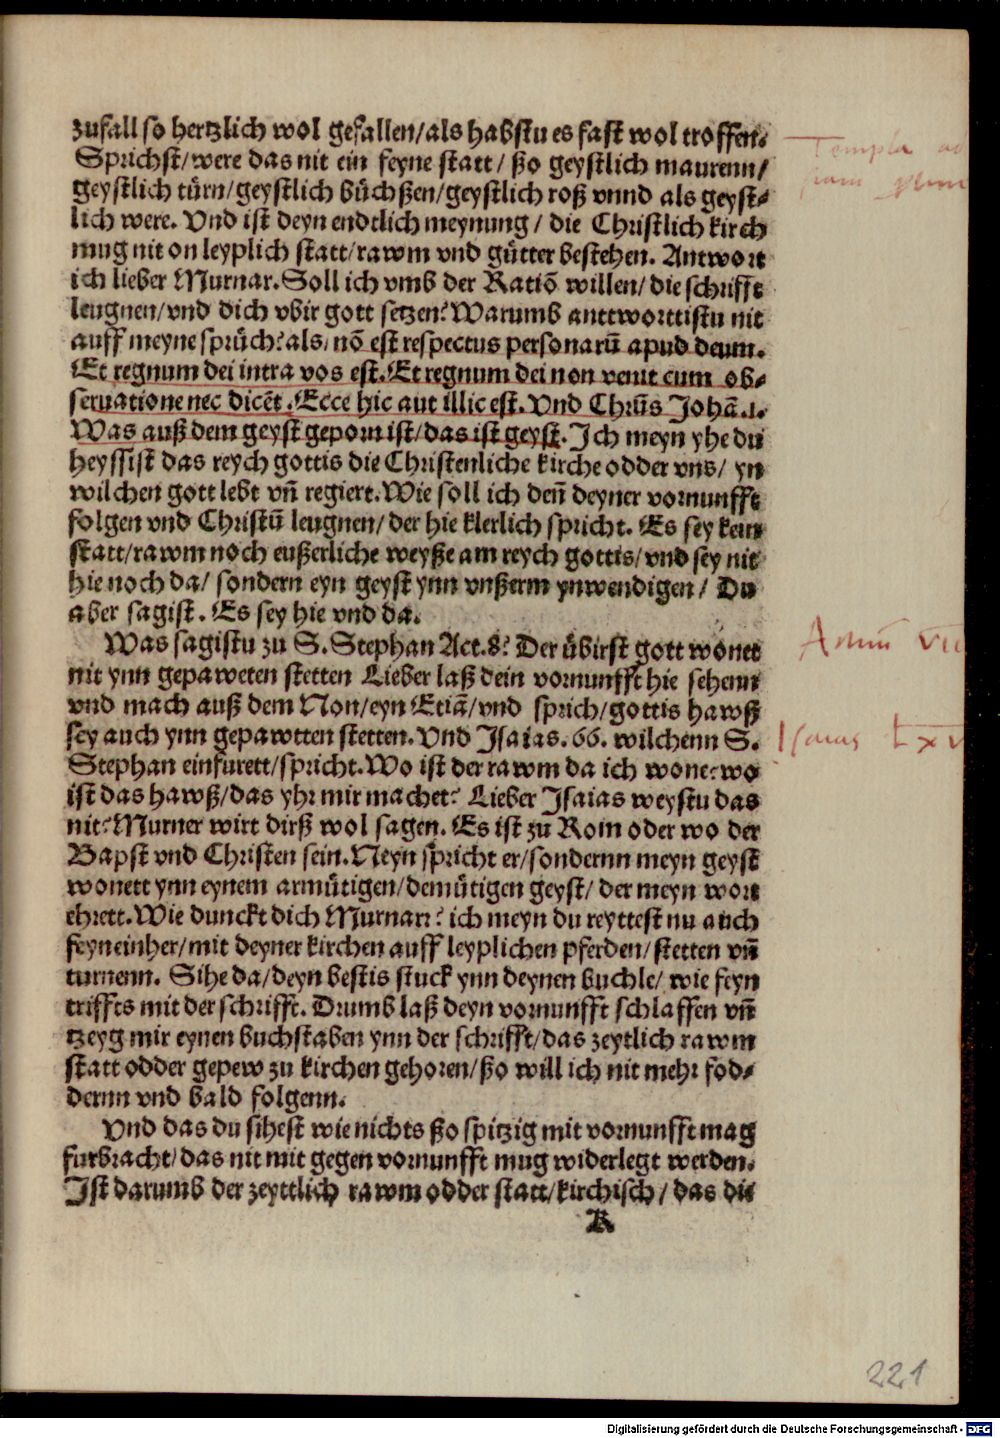 zufall so hertzlich wol gefallen/als habstu es fast wol troffen.
Sprichst/were das nit ein feyne statt/ ßo geystlich maurenn/
geystlich türn/geystlich büchßen/geystlich roß vnnd als geyst⸗
lich were. Vnd ist deyn endtlich meynung/ die Christlich kirch
mug nit on leyplich statt/rawm vnd gütter bestehen. Antwort
ich lieber Murnar. Soll ich vmb der Ratiō willen/ die schrifft
leugnen/vnd dich vbir gott setzen? Warumb anttworttistu nit
auff meyne sprüch? als/ nō est respectus personarū apud deum.
Et regnum dei intra vos est. Et regnum dei non venit cum ob⸗
seruatione nec dicēt. Ecce hic aut illic est. Vnd Chrūs Johā.1.
Was auß dem geyst geporn ist/das ist geyst. Ich meyn yhe du
heyssist das reych gottis die Christenliche kirche odder vns/ yn
wilchen gott lebt vn̄ regiert. Wie soll ich den̄ deyner vornunfft
folgen vnd Christū leugnen/ der hie klerlich spricht. Es sey kein
statt/rawm noch eußerliche weyße am reych gottis/ vnd sey nit
hie noch da/ sondern eyn geyst ynn vnßerm ynwendigen/ Du
aber sagist. Es sey hie vnd da.
Was sagistu zu S. Stephan Act.8? Der übirst gott wonet
nit ynn gepaweten stetten Lieber laß dein vornunfft hie sehenn
vnd mach auß dem Non/eyn Etiā/vnd sprich/gottis hawß
sey auch ynn gepawtten stetten. Vnd Jsaias.66. wilchenn S.
Stephan einfurett/spricht. Wo ist der rawm da ich wone? wo
ist das hawß/das yhr mir machet? Lieber Jsaias weystu das
nit? Murner wirt dirß wol sagen. Es ist zu Rom oder wo der
Bapst vnd Christen sein. Neyn spricht er/sondernn meyn geyst
wonett ynn eynem armütigen/demütigen geyst/ der meyn wort
ehrett. Wie dunckt dich Murnarr? ich meyn du reyttest nu auch
feyn einher/mit deyner kirchen auff leyplichen pferden/stetten vn̄
turnenn. Sihe da/deyn bestis stuck ynn deynen buchle/ wie feyn
triffts mit der schrifft. Drumb laß deyn vornunfft schlaffen vn̄
tzeyg mir eynen buchstaben ynn der schrifft/das zeytlich rawm
statt odder gepew zu kirchen gehoren/ßo will ich nit mehr fod⸗
dernn vnd bald folgenn.
Vnd das du sihest wie nichts ßo spitzig mit vornunfft mag
furbracht/das nit mit gegen vornunfft mug widerlegt werden.
Ist darumb der zeyttlich rawm odder statt/kirchisch/ das die
R
Templa
Actuū VII
Isaias LXV
221
Digitalisierung gefördert durch die Deutsche Forschungsgemeinschaft - DFG